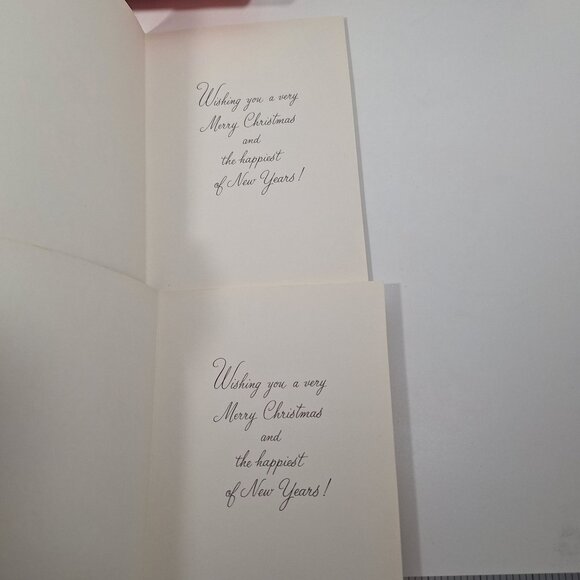 Wishing you a very
Merry Christmas
and
the happiest
of New Years!
Wishing you a very
Merry Christmas
and
the happiest
of New Years!